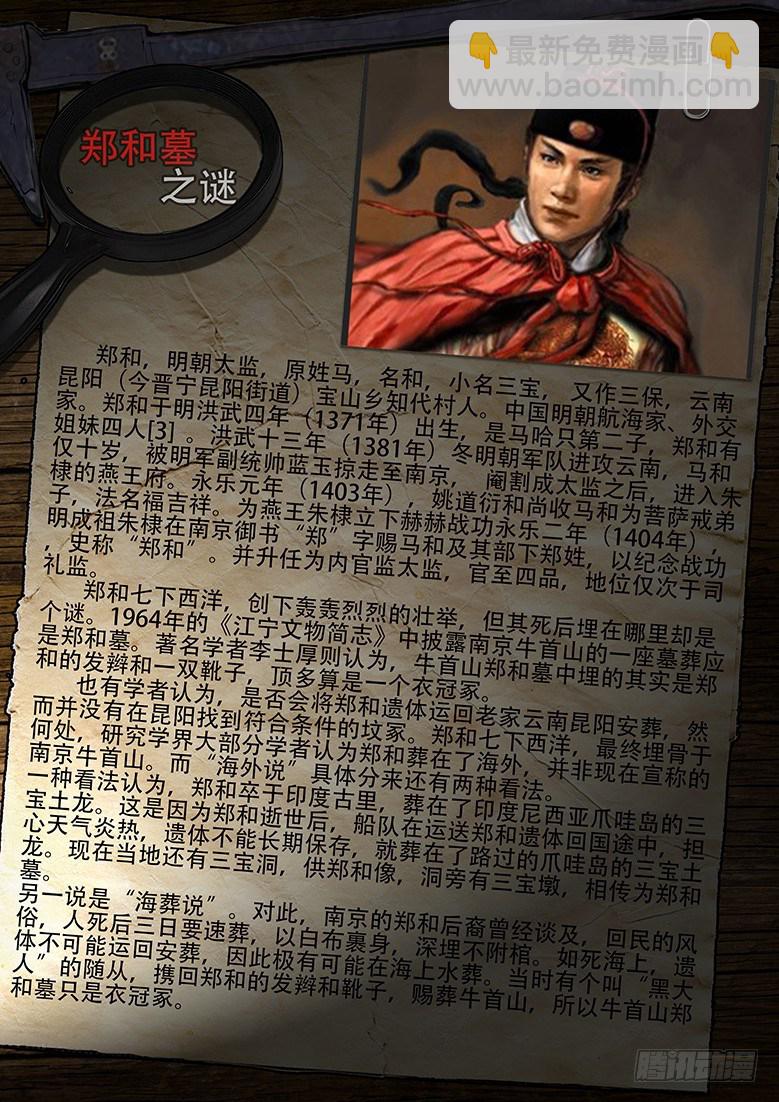 👇最新免费漫画👇
www.baozimh.com
郑和墓
之谜
郑和，明朝太监，原姓马，名和，小名三宝，又作三保，云南
昆阳（今晋宁昆阳街道）宝山乡知代村人。中国明朝航海家、外交
家。郑和于明洪武四年（1371年）出生，是马哈只第二子，郑和有
姐妹四人[3] 。洪武十三年（1381年）冬明朝军队进攻云南，马和
仅十岁，被明军副统帅蓝玉掠走至南京，阉割成太监之后，进入朱
棣的燕王府。永乐元年（1403年），姚道衍和尚收马和为菩萨戒弟
子，法名福吉祥。为燕王朱棣立下赫赫战功永乐二年（1404年），
明成祖朱棣在南京御书“郑”字赐马和及其部下郑姓，以纪念战功
，史称“郑和”。并升任为内官监太监，官至四品，地位仅次于司
礼监。
郑和七下西洋，创下轰轰烈烈的壮举，但其死后埋在哪里却是
个谜。1964年的《江宁文物简志》中披露南京牛首山的一座墓葬应
是郑和墓。著名学者李士厚则认为，牛首山郑和墓中埋的其实是郑
和的发辫和一双靴子，顶多算是一个衣冠冢。
也有学者认为，是否会将郑和遗体运回老家云南昆阳安葬，然
而并没有在昆阳找到符合条件的坟冢。郑和七下西洋，最终埋骨于
何处，研究学界大部分学者认为郑和葬在了海外，并非现在宣称的
南京牛首山。而“海外说”具体分来还有两种看法。
一种看法认为，郑和卒于印度古里，葬在了印度尼西亚爪哇岛的三
宝土龙。这是因为郑和逝世后，船队在运送郑和遗体回国途中，担
心天气炎热，遗体不能长期保存，就葬在了路过的爪哇岛的三宝土
龙。现在当地还有三宝洞，供郑和像，洞旁有三宝墩，相传为郑和
墓。
另一说是“海葬说”。对此，南京的郑和后裔曾经谈及，回民的风
俗，人死后三日要速葬，以白布裹身，深埋不附棺。如死海上，遗
体不可能运回安葬，因此极有可能在海上水葬。当时有个叫“黑大
人”的随从，携回郑和的发辫和靴子，赐葬牛首山，所以牛首山郑
和墓只是衣冠冢。
腾讯动漫